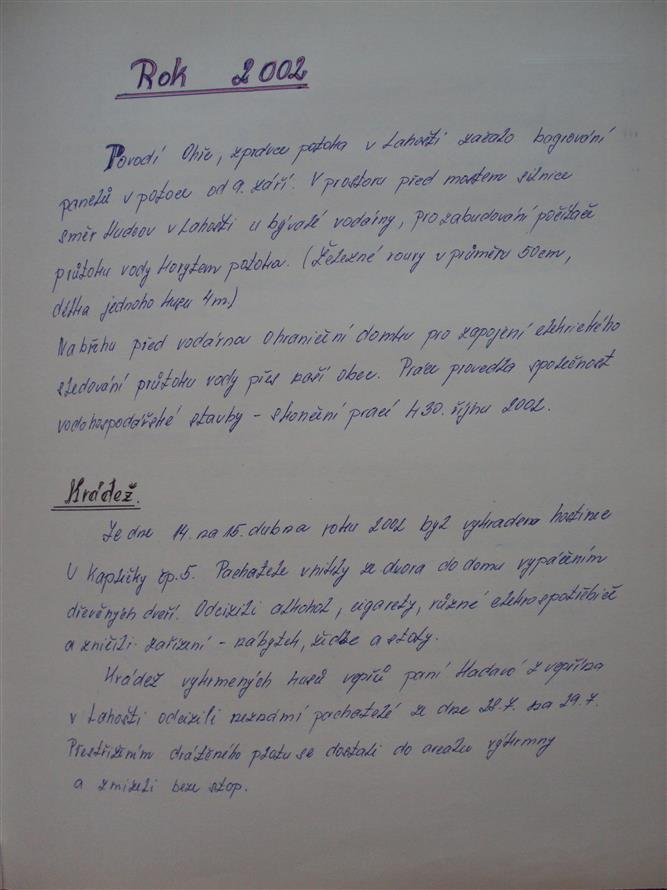 Rok 2002
Povodí Ohře, zprávce potoka v Lahošti začalo bagrování
panelů v potoce od 9. září. V prostoru před mostem silnice
směr Hudcov v Lahošti u bývalé vodárny, pro zabudování počítače
průtoku vody korytem potoka. (Železné roury v průměru 50cm,
délka jednoho kusu 4m.)
Na břehu před vodárnou ohraničení domku pro zapojení elektrického
sledování průtoku vody přes naší obec. Práce provedla společnost
vodohospodářské stavby - skončení prací k 30. říjnu 2002.
Krádež.
Ze dne 14. na 15. dubna roku 2002 byl vykraden hostinec
U Kapličky čp. 5. Pachatelé vnikly ze dvora do domu vypáčením
dřevěných dveří. Odcizili alkohol, cigarety, různé elektrospotřebiče
a zničili zařízení - nábytek, židle a stoly.
Krádež vykrmených kusů vepřů paní Hadavé z vepřína
v Lahošti odcizili neznámí pachatelé ze dne 28.7. na 29.7.
Přestřižením drátěného plotu se dostali do areálu výkrmny
a zmizeli beze stop.